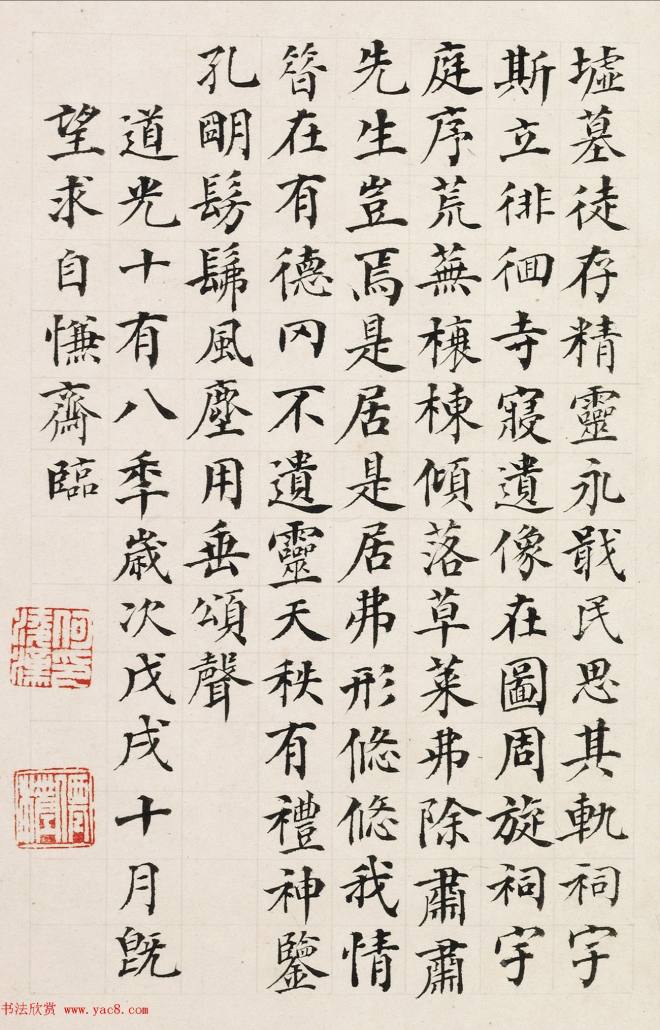 墟墓徒存精靈永戢民思其軌祠宇
斯立徘徊寺寢遺像在圖周旋祠宇
庭序荒蕪榱棟傾落草萊弗除肅肅
先生豈焉是居是居弗形悠悠我情
昝在有德罔不遺靈天秩有禮神鑒
孔朙髣髴風塵用垂頌聲
道光十有八秊歲次戊戌十月既
望求自慊齋臨
书法欣赏 www.yac8.com